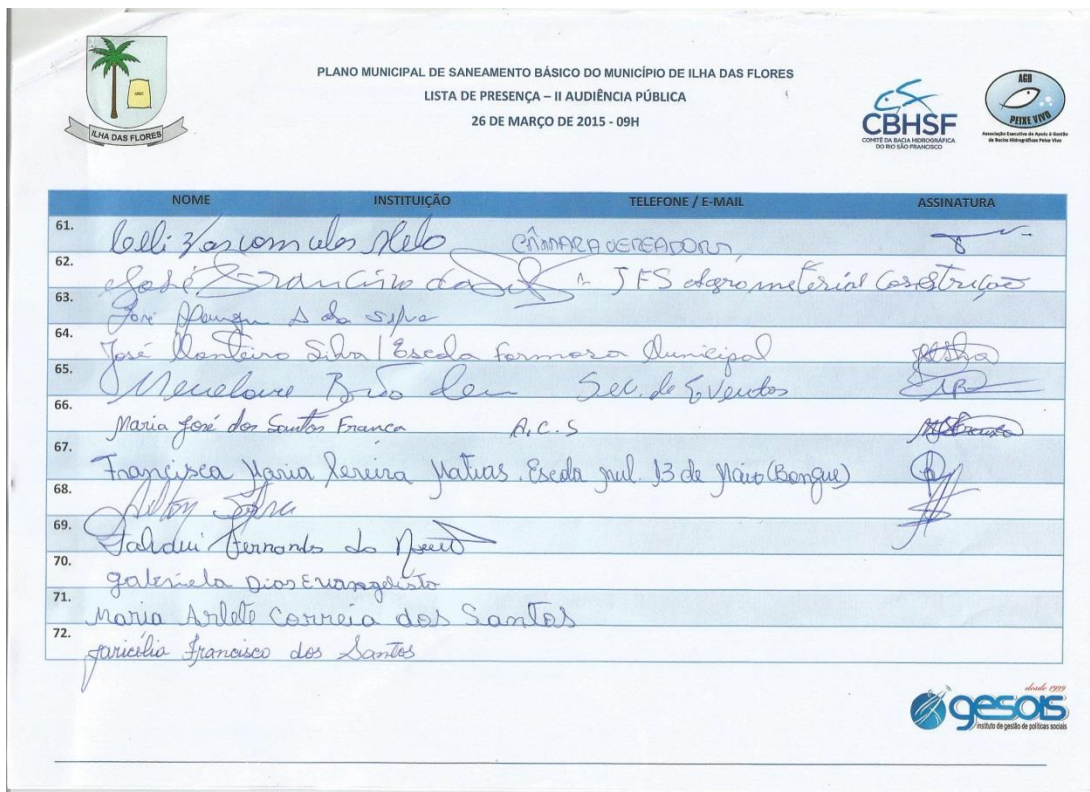 PLANO MUNICIPAL DE SANEAMENTO BÁSICO DO MUNICÍPIO DE ILHA DAS FLORES
LISTA DE PRESENÇA – II AUDIÊNCIA PÚBLICA
26 DE MARÇO DE 2015 - 09H
ILHA DAS FLORES
CBHSF
COMITÊ DA BACIA HIDROGRÁFICA
DO RIO SÃO FRANCISCO
AGB
PEIXE VIVO
Associação Executiva de Apoio à Gestão
de Bacias Hidrográficas Peixe Vivo
NOME INSTITUIÇÃO TELEFONE / E-MAIL ASSINATURA
61. Melo CÂMARA VEREADORES
62. José Francisco da JFS Agrometerial Construção
63. José da Silva
64. José Monteiro Silva / Escola Formosa Municipal
65. Sec. de Eventos
66. Maria José dos Santos França A.C.S
67. Francisca Maria Pereira Matias. Escola mul. 13 de Maio (Bongue)
68.
69. Fernandes do
70. gabriela Dias Evangelista
71. Maria Arlete Correia dos Santos
72. Jaricélia Francisco dos Santos
desde 1999
gesois
instituto de gestão de políticas sociais